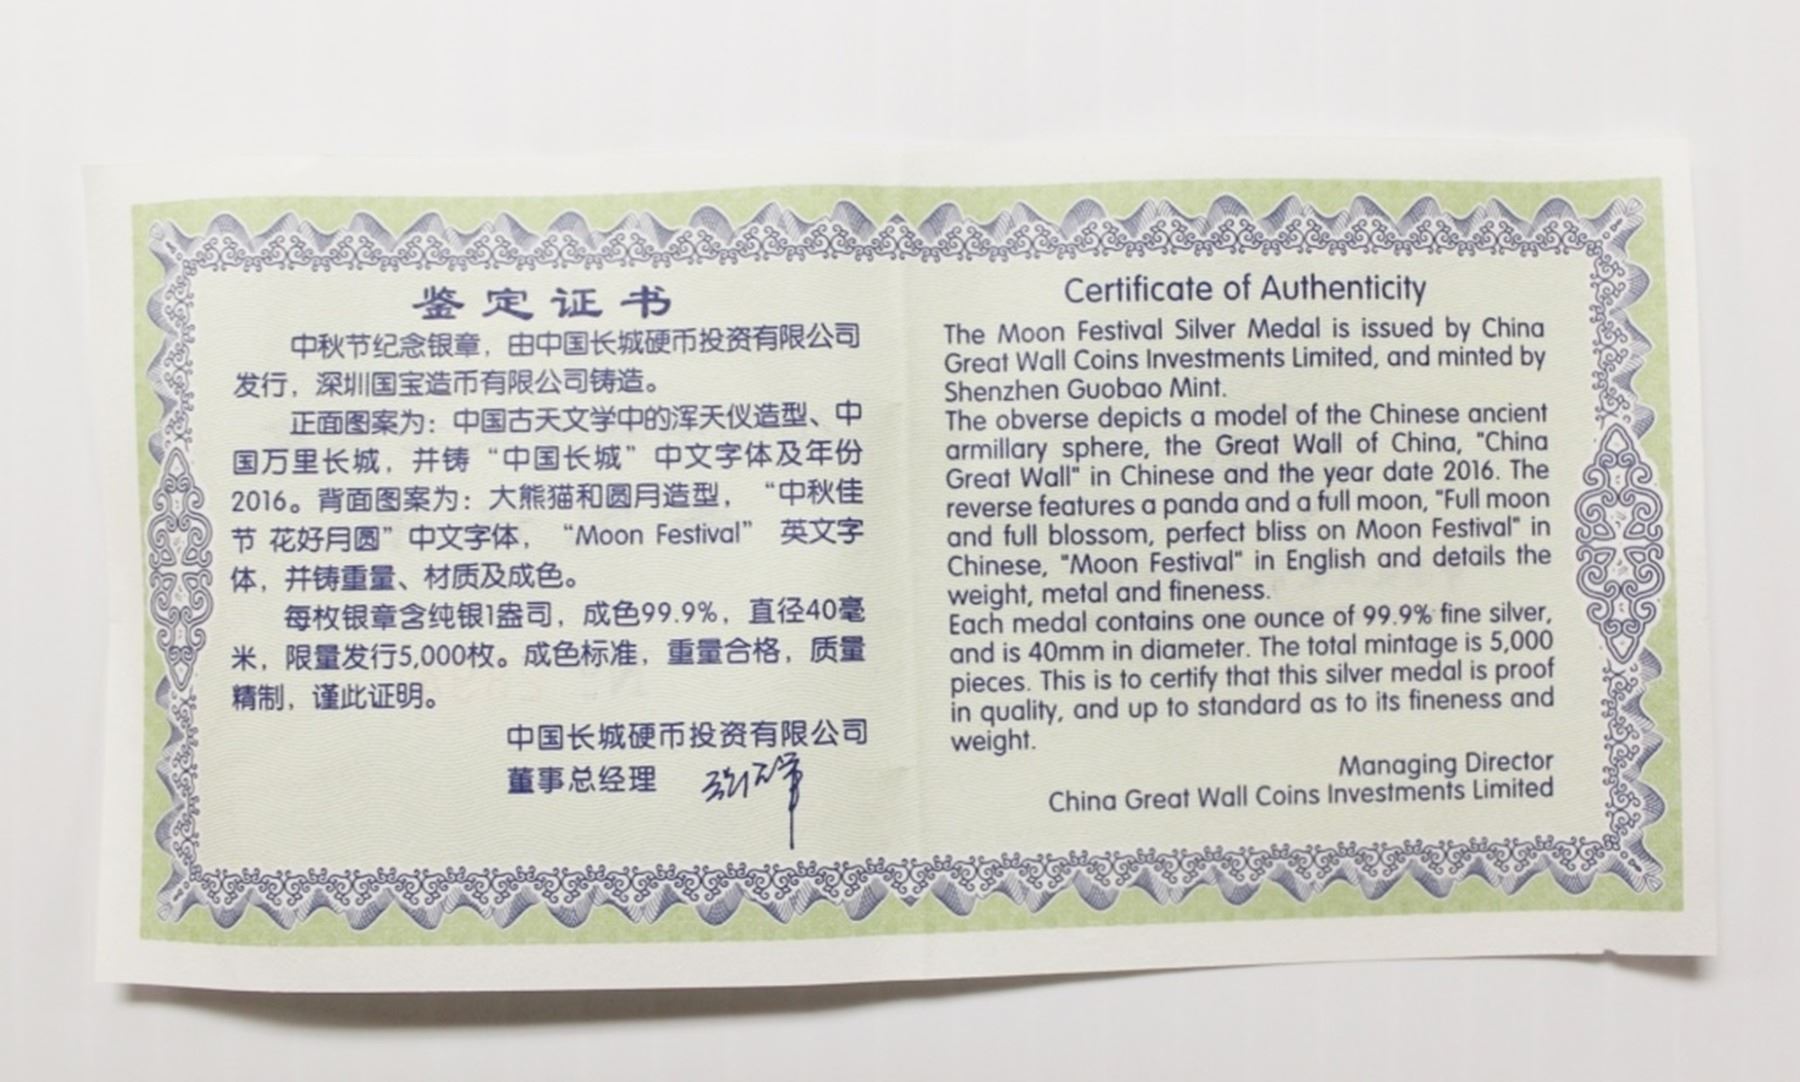 鉴定证书
中秋节纪念银章，由中国长城硬币投资有限公司
发行，深圳国宝造币有限公司铸造。
正面图案为：中国古天文学中的浑天仪造型、中
国万里长城，并铸“中国长城”中文字体及年份
2016。背面图案为：大熊猫和圆月造型，“中秋佳
节 花好月圆”中文字体，“Moon Festival” 英文字
体，并铸重量、材质及成色。
每枚银章含纯银1盎司，成色99.9%，直径40毫
米，限量发行5,000枚。成色标准，重量合格，质量
精制，谨此证明。
中国长城硬币投资有限公司
董事总经理
Certificate of Authenticity
The Moon Festival Silver Medal is issued by China
Great Wall Coins Investments Limited, and minted by
Shenzhen Guobao Mint.
The obverse depicts a model of the Chinese ancient
armillary sphere, the Great Wall of China, "China
Great Wall" in Chinese and the year date 2016. The
reverse features a panda and a full moon, "Full moon
and full blossom, perfect bliss on Moon Festival" in
Chinese, "Moon Festival" in English and details the
weight, metal and fineness.
Each medal contains one ounce of 99.9% fine silver,
and is 40mm in diameter. The total mintage is 5,000
pieces. This is to certify that this silver medal is proof
in quality, and up to standard as to its fineness and
weight.
Managing Director
China Great Wall Coins Investments Limited